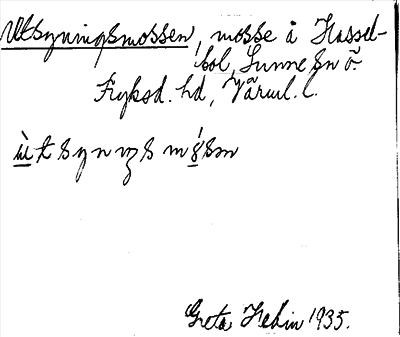 Utsyningsmossen, mosse å Hassel-
bol, Sunne sn o.
Fryksd. hd, Värml. l.
Greta Hedin 1935.